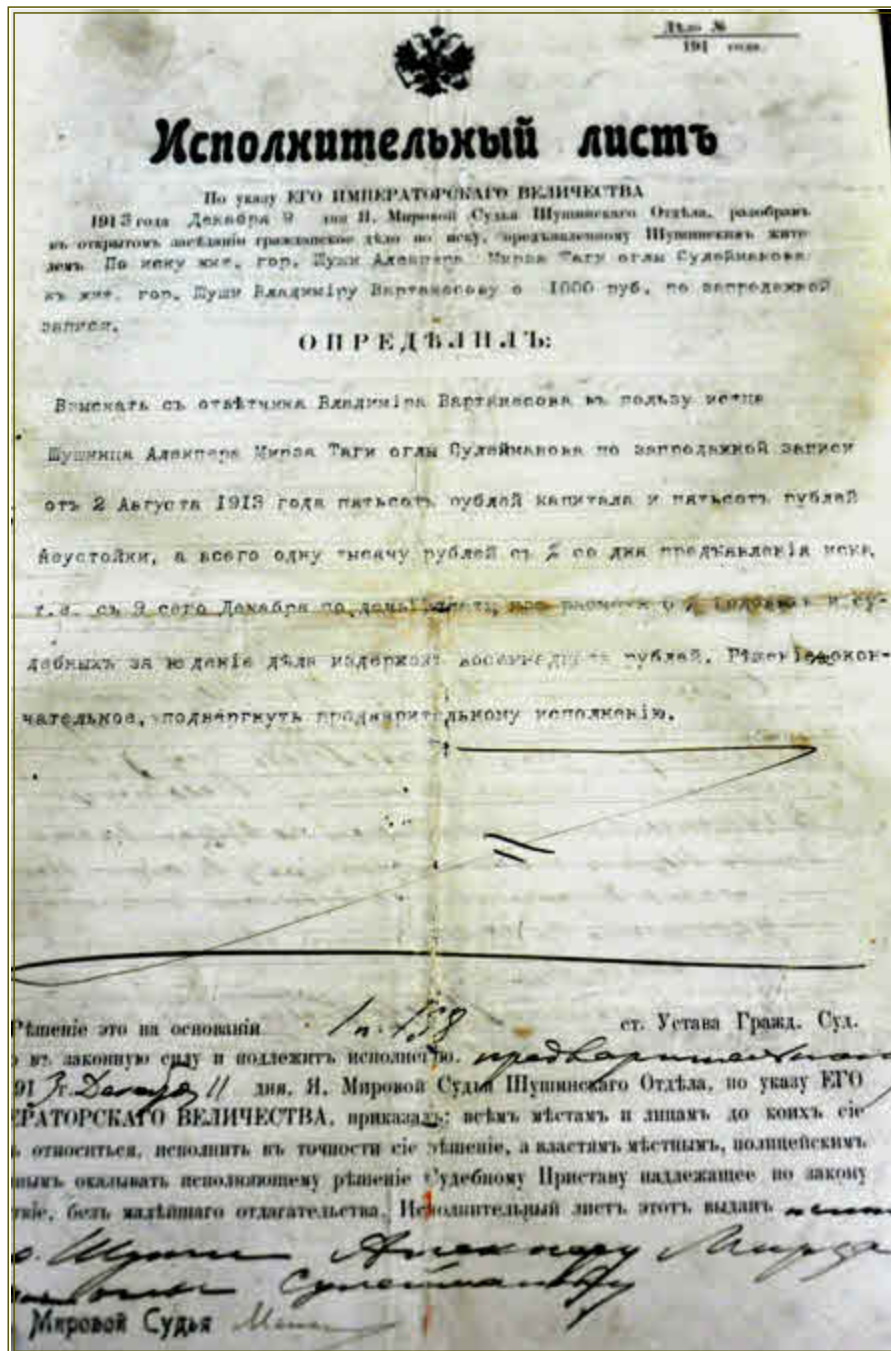 Дѣло №
191 года.
Исполнительный листъ
По указу ЕГО ИМПЕРАТОРСКАГО ВЕЛИЧЕСТВА
1913 года Декабря 9 дня Я. Мировой Судья Шушинскаго Отдѣла, разобравъ
въ открытомъ засѣданіи гражданское дѣло по иску, предъявленному Шушинскимъ жите
лемъ По иску жит. гор. Шуши Алекпера Мирза Таги оглы Сулейманова
къ жит. гор. Шуши Владиміру Вартанесову о 1000 руб. по запродажной
записи.
ОПРЕДѢЛИЛЪ:
Взыскать съ отвѣтчика Владиміра Вартанесова въ пользу истца
Шушинца Алекпера Мирза Таги оглы Сулейманова по запродажной записи
отъ 2 Августа 1913 года пятьсотъ рублей капитала и пятьсотъ рублей
неустойки, а всего одну тысячу рублей съ % со дня предъявленія иска,
т.е. съ 9 сего Декабря по день расчета 6 % годовыхъ и су-
дебныхъ за веденіе дѣла издержекъ восемнадцать рублей. Рѣшеніе окон-
чательное, подвергнуть предварительному исполненію.
Рѣшеніе это на основаніи 1 п. 138 ст. Устава Гражд. Суд.
въ законную силу и подлежитъ исполненію. предварительному
91 3 г. Декабря 11 дня. Я. Мировой Судья Шушинскаго Отдѣла, по указу ЕГО
ЕРАТОРСКАГО ВЕЛИЧЕСТВА, приказалъ: всѣмъ мѣстамъ и лицамъ до коихъ сіе
ъ относиться, исполнить въ точности сіе рѣшеніе, а властямъ мѣстнымъ, полицейскимъ
нымъ оказывать исполняющему рѣшеніе Судебному Приставу надлежащее по закону
твіе, безъ малѣйшаго отлагательства. Исполнительный листъ этотъ выданъ
Шуши Алекперу Мирза
оглы Сулейманову
Мировой Судья